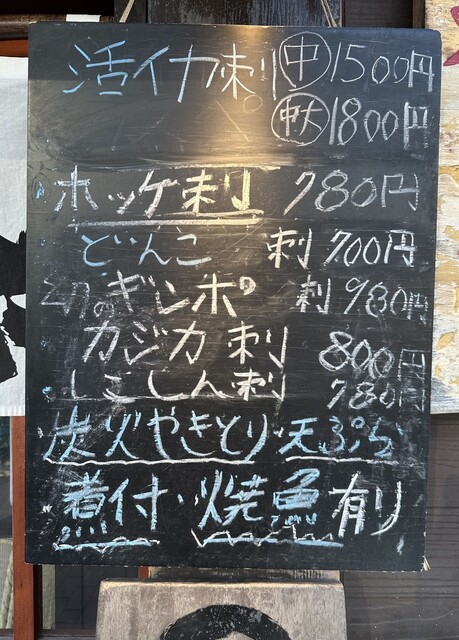 活イカ刺 中 1500円
中大 1800円
ホッケ刺 780円
どんこ 刺 700円
幻のギンポ 刺 980円
カジカ刺 800円
刺 780円
炭火やきとり・天ぷら
煮付・焼魚有り